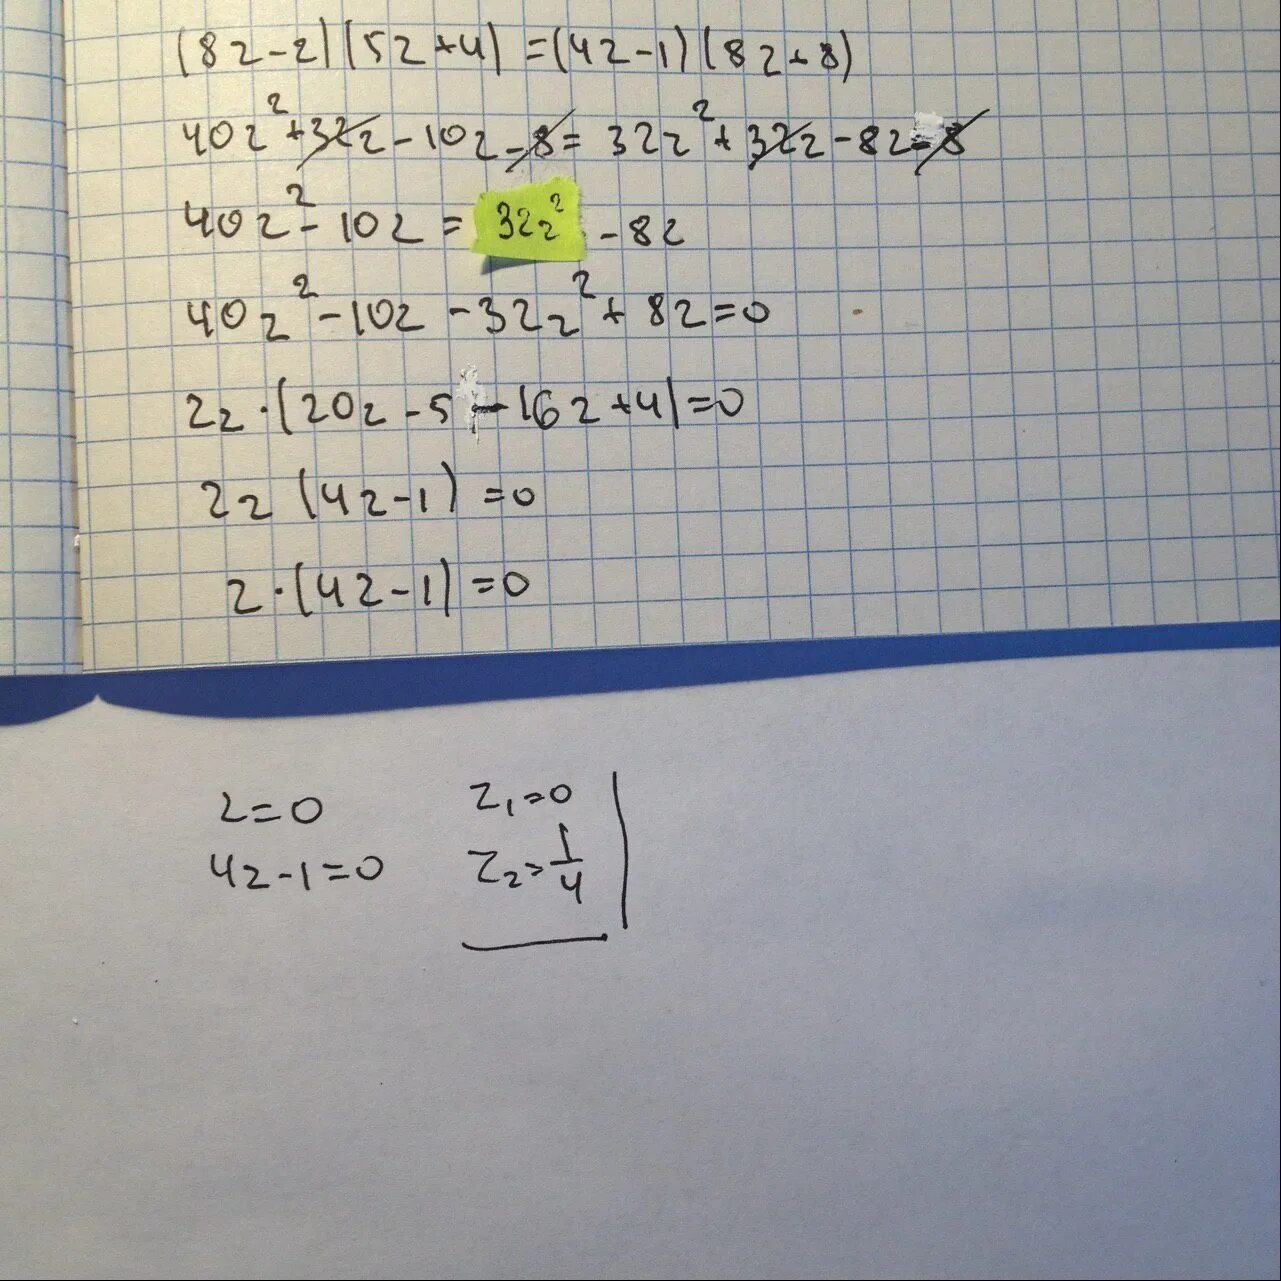 (8z-2)(5z+4)=(4z-1)(8z+8)
40z²+32z-10z-8=32z²+32z-8z-8
40z²-10z=32z²-8z
40z²-10z-32z²+8z=0
2z·(20z-5-16z+4)=0
2z(4z-1)=0
z·(4z-1)=0
z=0 z₁=0
4z-1=0 z₂=1/4